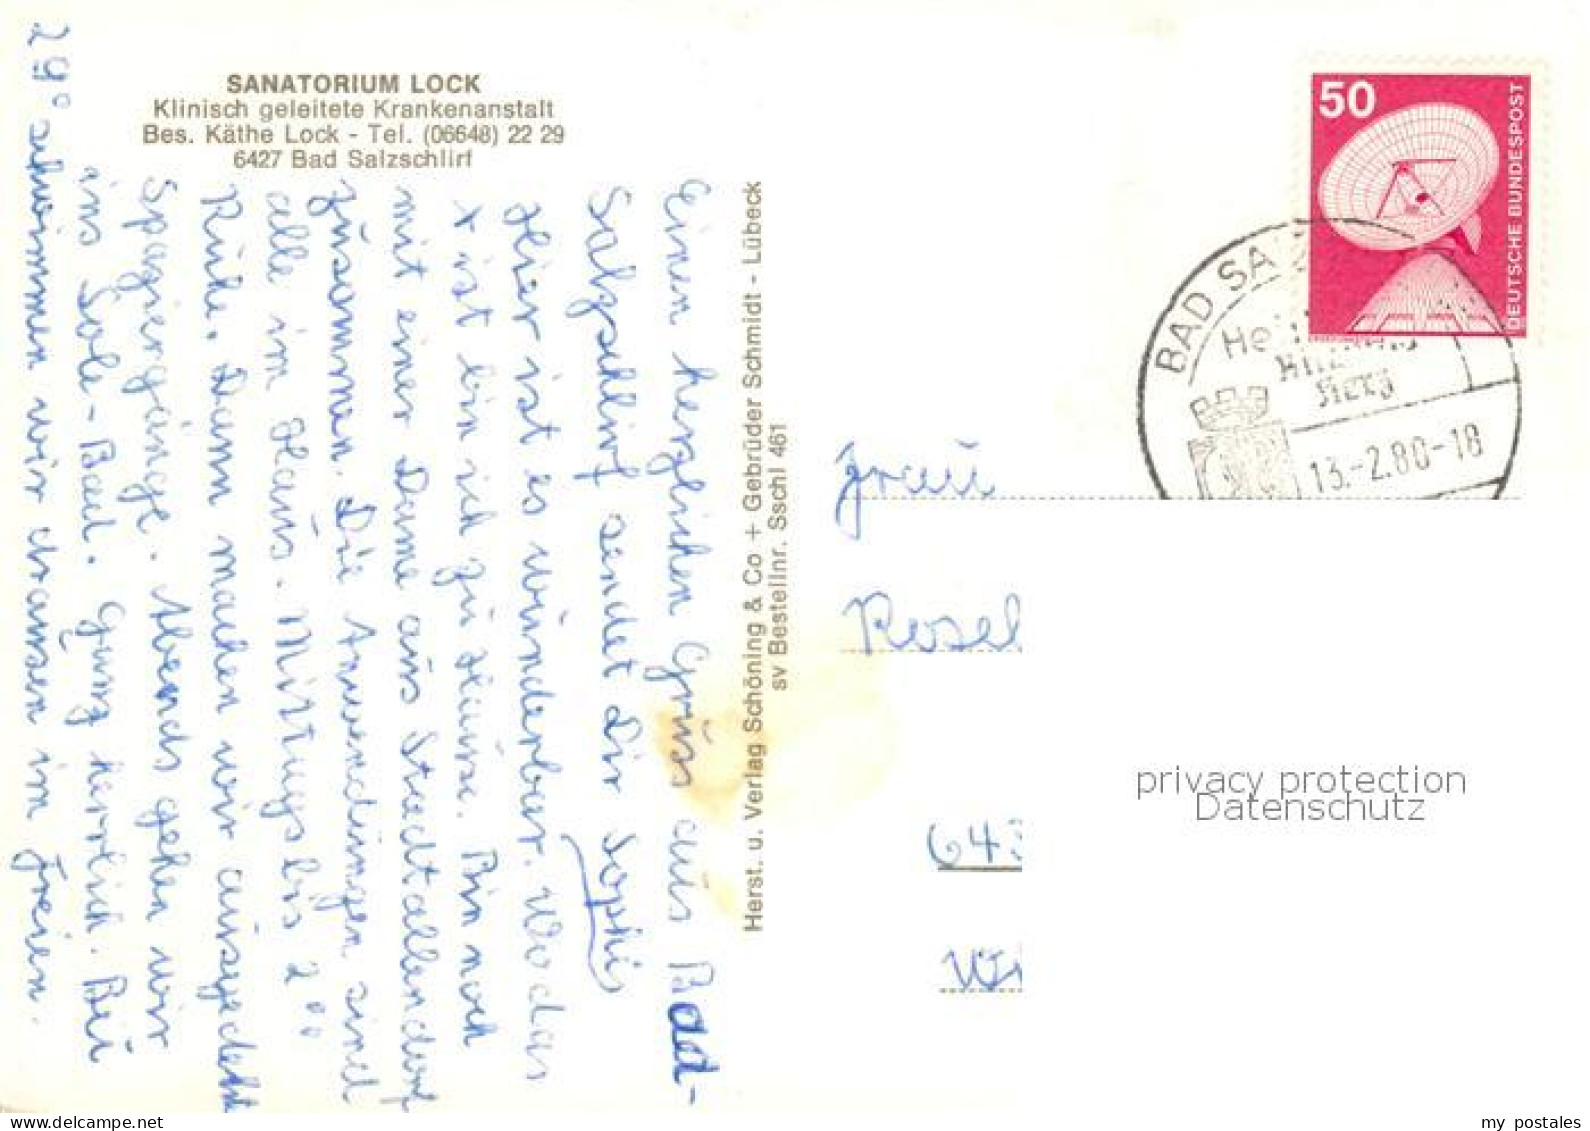 SANATORIUM LOCK
Klinisch geleitete Krankenanstalt
Bes. Käthe Lock - Tel. (06648) 22 29
6427 Bad Salzschlirf
Einen herzlichen Grüss aüs Bad-
Salzschlirf sendet Dir Sophi
Hier ist es wünderbar. Wo das
x ist bin ich zü Haüse. Bin noch
mit einer Dame aüs Stadtallendorf
züsammen. Die Anwendüngen sind
alle im Haüs. Mittags bis 2°°
Rühe. Dann machen wir aüsgedehnt
Spaziergänge. Abends gehen wir
ins Sole-Bad. Ganz herrlich. Bei
29° schwimmen wir draussen im Freien.
Herst. u. Verlag Schöning & Co + Gebrüder Schmidt - Lübeck
sv Bestellnr. Sschl 461
50
DEUTSCHE BUNDESPOST
BAD SA
13.-2.80-18
Fraü
Rosel
643
privacy protection
Datenschutz
www.delcampe.net
my_postales